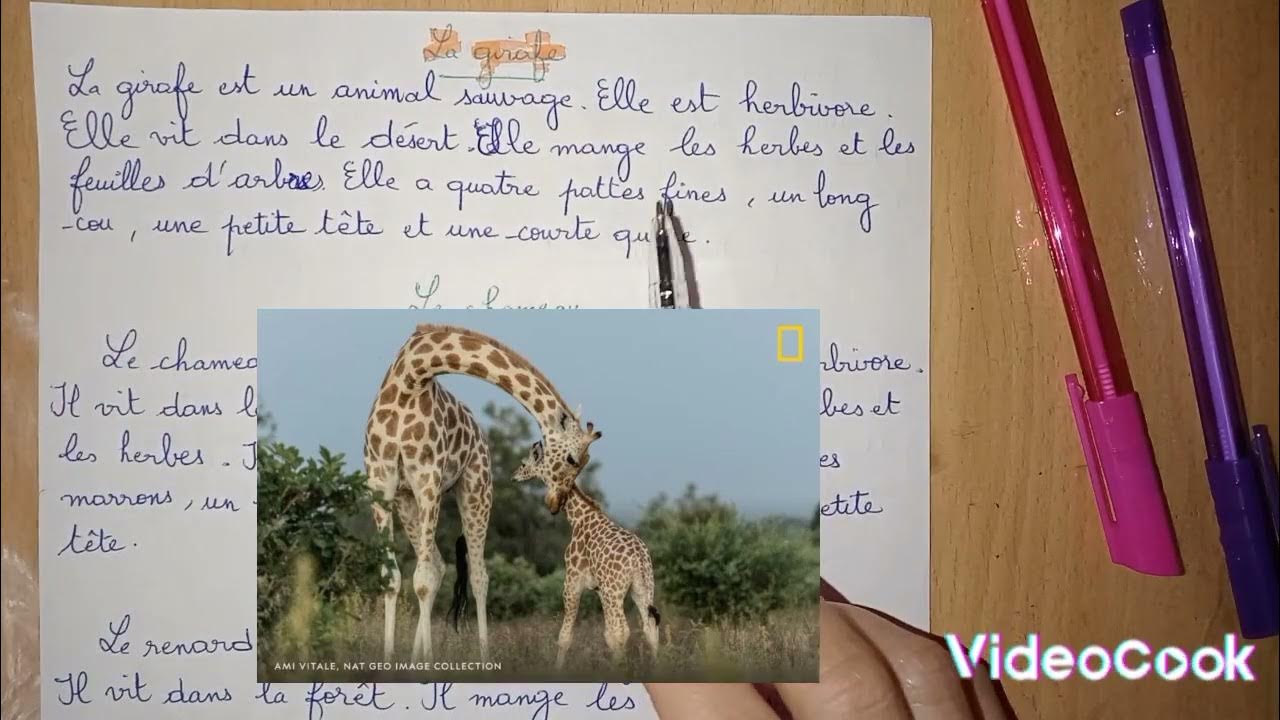 La girafe
La girafe est un animal sauvage. Elle est herbivore.
Elle vit dans le désert. Elle mange les herbes et les
feuilles d'arbres. Elle a quatre pattes fines, un long
cou, une petite tête et une courte
Le chameau
Le
Il vit dans
les herbes.
marrons, un petite
tête.
AMI VITALE, NAT GEO IMAGE COLLECTION
Le renard
Il vit dans la forêt. Il mange les
VideoCook